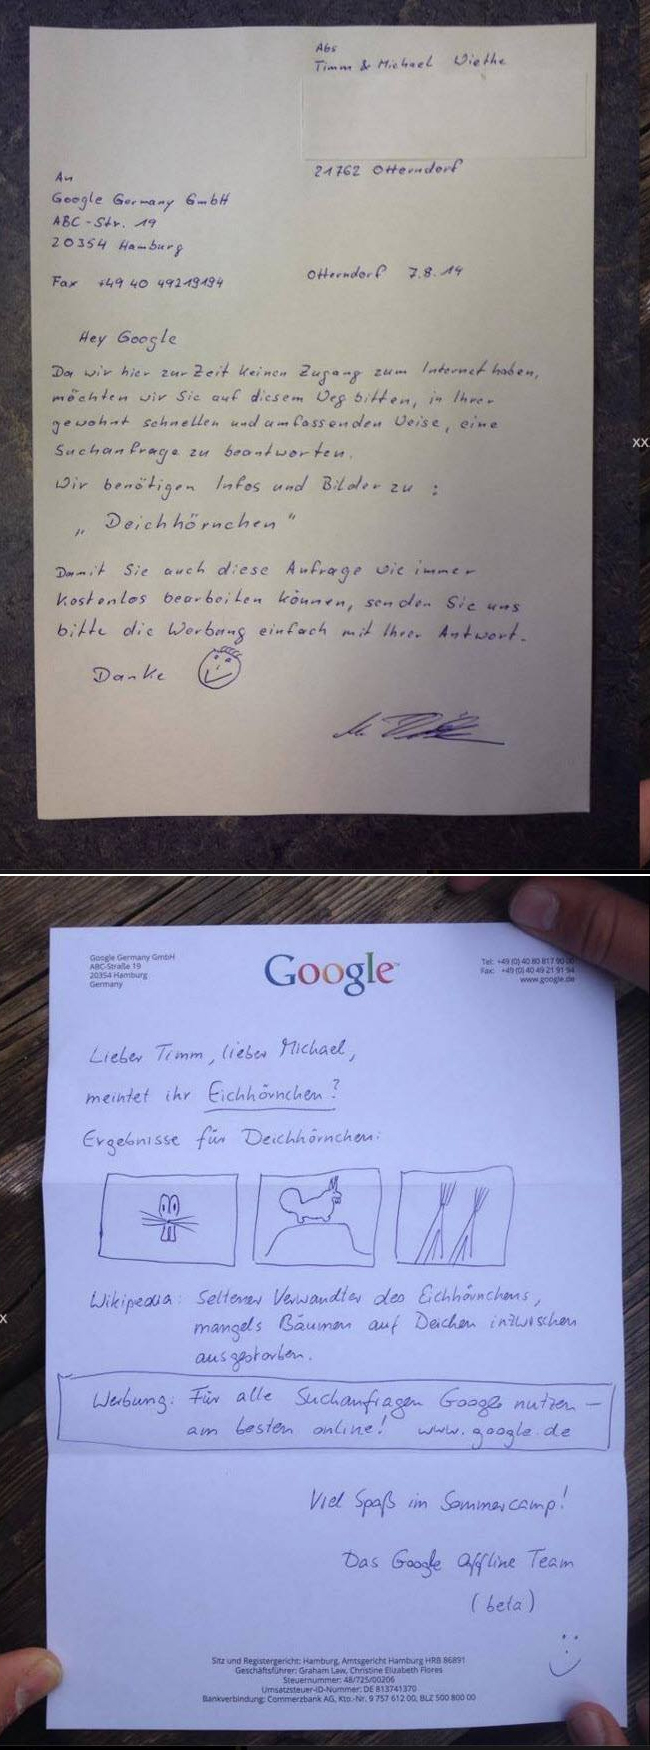 Abs
Timm & Michael Wiethe
21762 Otterndorf
An
Google Germany GmbH
ABC-Str. 19
20354 Hamburg
Fax +49 40 49219194
Otterndorf 7.8.14
Hey Google
Da wir hier zur Zeit keinen Zugang zum Internet haben,
möchten wir Sie auf diesem Weg bitten, in Ihrer
gewohnt schnellen und umfassenden Weise, eine
Suchanfrage zu beantworten.
Wir benötigen Infos und Bilder zu :
„ Deichhörnchen "
Damit Sie auch diese Anfrage wie immer
kostenlos bearbeiten können, senden Sie uns
bitte die Werbung einfach mit Ihrer Antwort.
Danke
xx
Google Germany GmbH
ABC-Straße 19
20354 Hamburg
Germany
Google™
Tel: +49 (0) 40 80 817 90 00
Fax: +49 (0) 40 49 21 91 94
www.google.de
Lieber Timm, lieber Michael,
meintet ihr Eichhörnchen?
Ergebnisse für Deichhörnchen:
Wikipedia: Seltener Verwandter des Eichhörnchens,
mangels Bäumen auf Deichen inzwischen
ausgestorben.
x
Werbung: Für alle Suchanfragen Google nutzen –
am besten online! www.google.de
Viel Spaß im Sommercamp!
Das Google Offline Team
(beta)
Sitz und Registergericht: Hamburg, Amtsgericht Hamburg HRB 86891
Geschäftsführer: Graham Law, Christine Elizabeth Flores
Steuernummer: 48/725/00206
Umsatzsteuer-ID-Nummer: DE 813741370
Bankverbindung: Commerzbank AG, Kto.-Nr. 9 757 612 00, BLZ 500 800 00